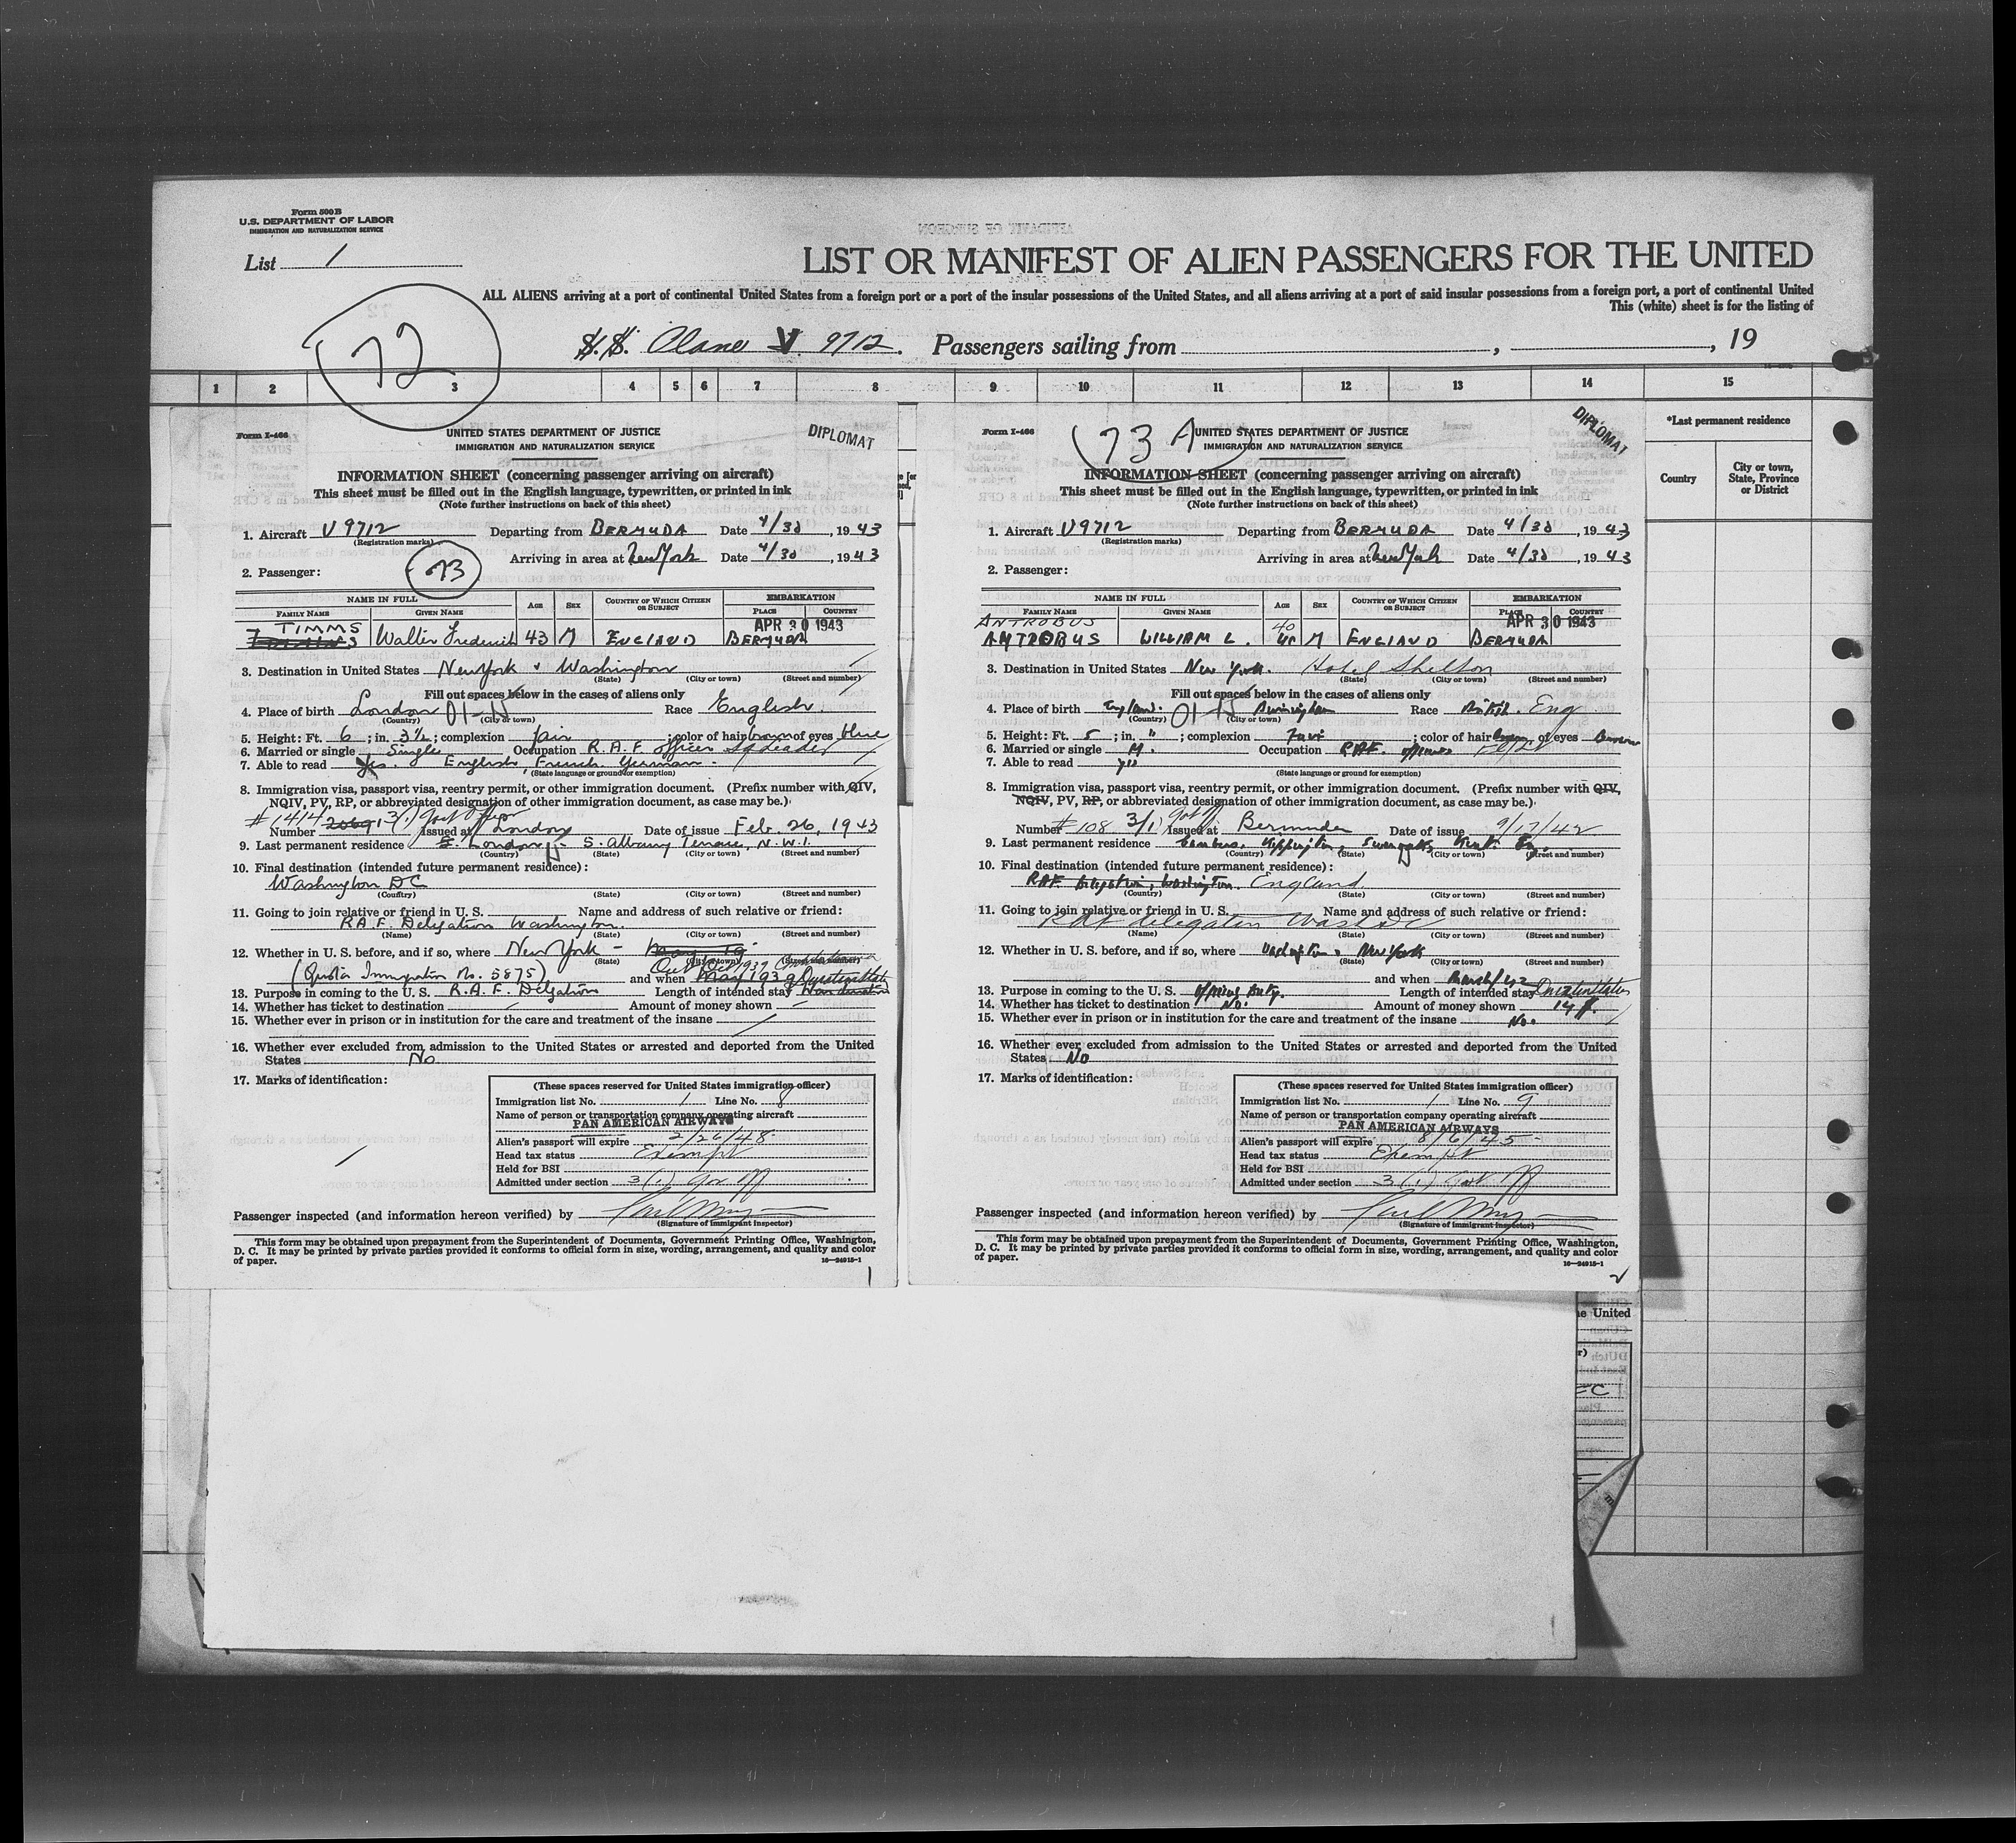 Form 500 B
U.S. DEPARTMENT OF LABOR
IMMIGRATION AND NATURALIZATION SERVICE
List 1
LIST OR MANIFEST OF ALIEN PASSENGERS FOR THE UNITED
ALL ALIENS arriving at a port of continental United States from a foreign port or a port of the insular possessions of the United States, and all aliens arriving at a port of said insular possessions from a foreign port, a port of continental United
This (white) sheet is for the listing of
72
S.S. Plane V 9712. Passengers sailing from , , 19
1 2 3 4 5 6 7 8 9 10 11 12 13 14 15
*Last permanent residence
Country
City or town,
State, Province
or District
Form I-466
UNITED STATES DEPARTMENT OF JUSTICE
IMMIGRATION AND NATURALIZATION SERVICE
DIPLOMAT
INFORMATION SHEET (concerning passenger arriving on aircraft)
This sheet must be filled out in the English language, typewritten, or printed in ink
(Note further instructions on back of this sheet)
1. Aircraft V9712 Departing from BERMUDA Date 4/30, 1943
(Registration marks)
Arriving in area at New York Date 4/30, 1943
2. Passenger: 73
NAME IN FULL AGE SEX COUNTRY OF WHICH CITIZEN OR SUBJECT EMBARKATION
FAMILY NAME GIVEN NAME PLACE COUNTRY
TIMMS APR 30 1943
Walter Frederick 43 M ENGLAND BERMUDA
3. Destination in United States New York & Washington
(State) (City or town) (Street and number)
Fill out spaces below in the cases of aliens only
4. Place of birth London 01-15 Race English.
(Country) (City or town)
5. Height: Ft. 6; in. 3½; complexion fair; color of hair brown of eyes blue
6. Married or single Single Occupation R.A.F. officer Sq Leader
7. Able to read Yes. English, French, German.
(State language or ground for exemption)
8. Immigration visa, passport visa, reentry permit, or other immigration document. (Prefix number with QIV,
NQIV, PV, RP, or abbreviated designation of other immigration document, as case may be.)
#1414 3(1) Govt Officer
Number Issued at London Date of issue Feb. 26, 1943
9. Last permanent residence London S. Albany Terrace, N.W.1.
(Country) (State) (City or town) (Street and number)
10. Final destination (intended future permanent residence):
Washington DC
(Country) (State) (City or town) (Street and number)
11. Going to join relative or friend in U. S. Name and address of such relative or friend:
R.A.F. Delegation Washington.
(Name) (State) (City or town) (Street and number)
12. Whether in U. S. before, and if so, where New York -
(State) (City or town)
(Quota Immigration No. 5875) and when May 1939
13. Purpose in coming to the U. S. R.A.F. Delgation Length of intended stay
14. Whether has ticket to destination Amount of money shown
15. Whether ever in prison or in institution for the care and treatment of the insane
16. Whether ever excluded from admission to the United States or arrested and deported from the United
States No
17. Marks of identification:
(These spaces reserved for United States immigration officer)
Immigration list No. 1 Line No. 8
Name of person or transportation company operating aircraft
PAN AMERICAN AIRWAYS
Alien's passport will expire 2/26/48
Head tax status Exempt
Held for BSI
Admitted under section 3(1) Gov Off
Passenger inspected (and information hereon verified) by
(Signature of immigrant inspector)
This form may be obtained upon prepayment from the Superintendent of Documents, Government Printing Office, Washington,
D. C. It may be printed by private parties provided it conforms to official form in size, wording, arrangement, and quality and color
of paper. 16—24915-1
1
Form I-466
73 A
UNITED STATES DEPARTMENT OF JUSTICE
IMMIGRATION AND NATURALIZATION SERVICE
DIPLOMAT
INFORMATION SHEET (concerning passenger arriving on aircraft)
This sheet must be filled out in the English language, typewritten, or printed in ink
(Note further instructions on back of this sheet)
1. Aircraft V9712 Departing from BERMUDA Date 4/30, 1943
(Registration marks)
Arriving in area at New York Date 4/30, 1943
2. Passenger:
NAME IN FULL AGE SEX COUNTRY OF WHICH CITIZEN OR SUBJECT EMBARKATION
FAMILY NAME GIVEN NAME PLACE COUNTRY
ANTROBUS 40 APR 30 1943
ANTROBUS WILLIAM L. 40 M ENGLAND BERMUDA
3. Destination in United States New York. Hotel Shelton
(State) (City or town) (Street and number)
Fill out spaces below in the cases of aliens only
4. Place of birth England. 01-15 Birmingham Race British. Eng
(Country) (City or town)
5. Height: Ft. 5; in. 11; complexion Fair; color of hair Brown of eyes Brown
6. Married or single M. Occupation RAF. officer
7. Able to read yes
(State language or ground for exemption)
8. Immigration visa, passport visa, reentry permit, or other immigration document. (Prefix number with QIV,
NQIV, PV, RP, or abbreviated designation of other immigration document, as case may be.)
Number #108 3/1) Govt Off Issued at Bermuda Date of issue 9/17/42
9. Last permanent residence Kippington, Sevenoaks, Kent
(Country) (State) (City or town) (Street and number)
10. Final destination (intended future permanent residence):
RAF Delegation, Washington. England
(Country) (State) (City or town) (Street and number)
11. Going to join relative or friend in U. S. Name and address of such relative or friend:
RAF delegation Wash DC
(Name) (State) (City or town) (Street and number)
12. Whether in U. S. before, and if so, where Washington & New York
(State) (City or town) (Street and number)
and when March/42
13. Purpose in coming to the U. S. Official Duty. Length of intended stay
14. Whether has ticket to destination No. Amount of money shown
15. Whether ever in prison or in institution for the care and treatment of the insane No.
16. Whether ever excluded from admission to the United States or arrested and deported from the United
States No
17. Marks of identification:
(These spaces reserved for United States immigration officer)
Immigration list No. 1 Line No. 9
Name of person or transportation company operating aircraft
PAN AMERICAN AIRWAYS
Alien's passport will expire 8/6/45
Head tax status Exempt
Held for BSI
Admitted under section 3(1) Govt Off
Passenger inspected (and information hereon verified) by
(Signature of immigrant inspector)
This form may be obtained upon prepayment from the Superintendent of Documents, Government Printing Office, Washington,
D. C. It may be printed by private parties provided it conforms to official form in size, wording, arrangement, and quality and color
of paper. 16—24915-1
2